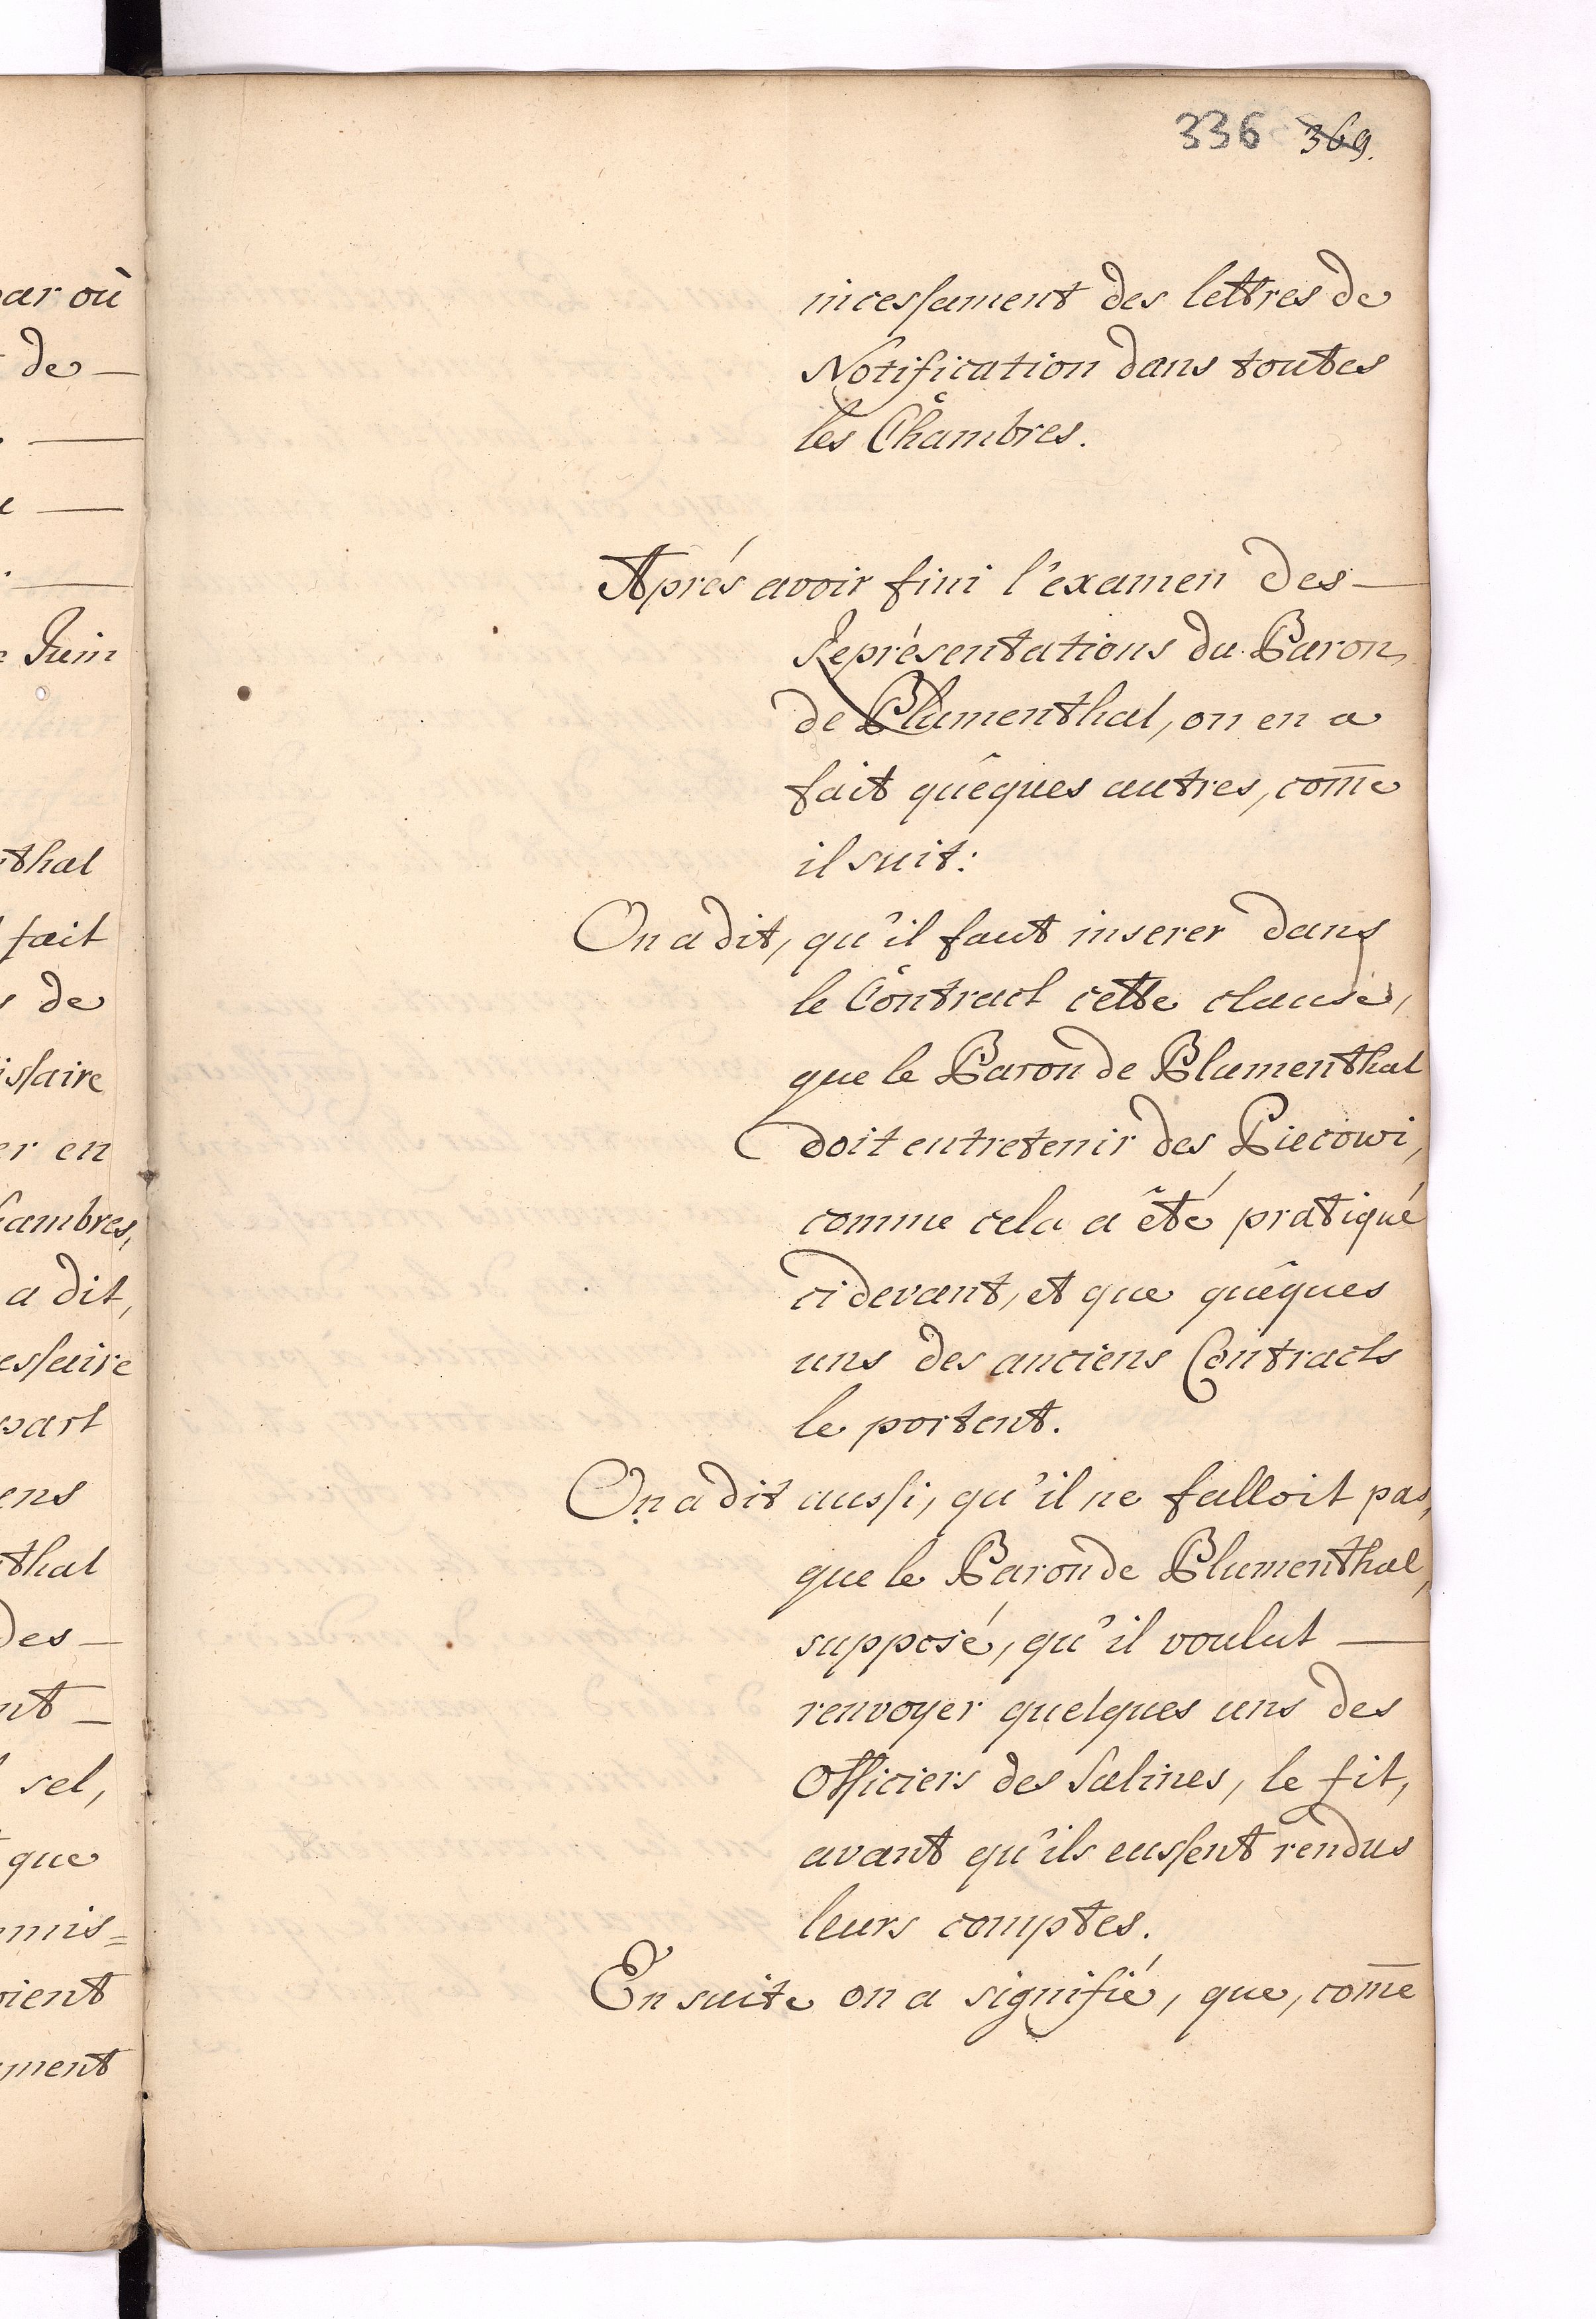 ar où
de —
e Juin
thal
fait
s de
issaire
er en
hambres,
a dit,
essaire
part
ens
thal
des —
nt —
sel,
que
mis=
oient
ment
336 369.
incessament des lettres de
Notification dans toutes
les Chambres.
Aprés avoir fini l'examen des —
Représentations du Baron
de Blumenthal, on en a
fait quêques autres, com̄e
il suit:
On a dit, qu'il faut inserer dans
le Contract cette clause,
que le Baron de Blumenthal
doit entretenir des Piecowi,
comme cela a êté pratiqué
ci devant, et que quêques
uns des anciens Contracts
le portent.
On a dit aussi, qu'il ne falloit pas,
que le Baron de Blumenthal,
supposé, qu'il voulut —
renvoyer quelques uns des
Officiers des Salines, le fit,
avant qu'ils eussent rendus
leurs comptes.
En suite on a signifié, que, com̄e